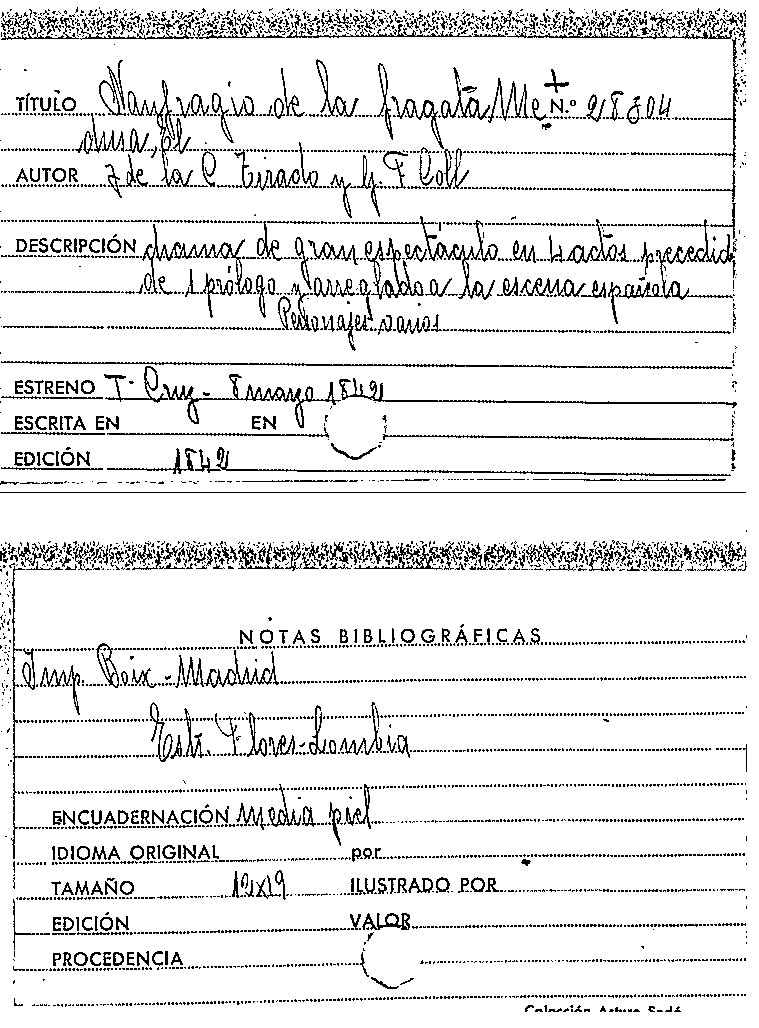 TÍTULO Naufragio de la fragata Me N.º 28304
dusa, El
AUTOR J de la C Tirado y G. F Coll
DESCRIPCIÓN drama de gran espectáculo en 4 actos precedid
de 1 prólogo y arreglado a la escena española
Personajes: varios
ESTRENO T. Cruz - 8 mayo 1842
ESCRITA EN EN
EDICIÓN 1842
NOTAS BIBLIOGRÁFICAS
Imp. Boix - Madrid
Estr. Flores-Lombia
ENCUADERNACIÓN media piel
IDIOMA ORIGINAL por
TAMAÑO 12x19 ILUSTRADO POR
EDICIÓN VALOR
PROCEDENCIA
Colección Arturo Sedó